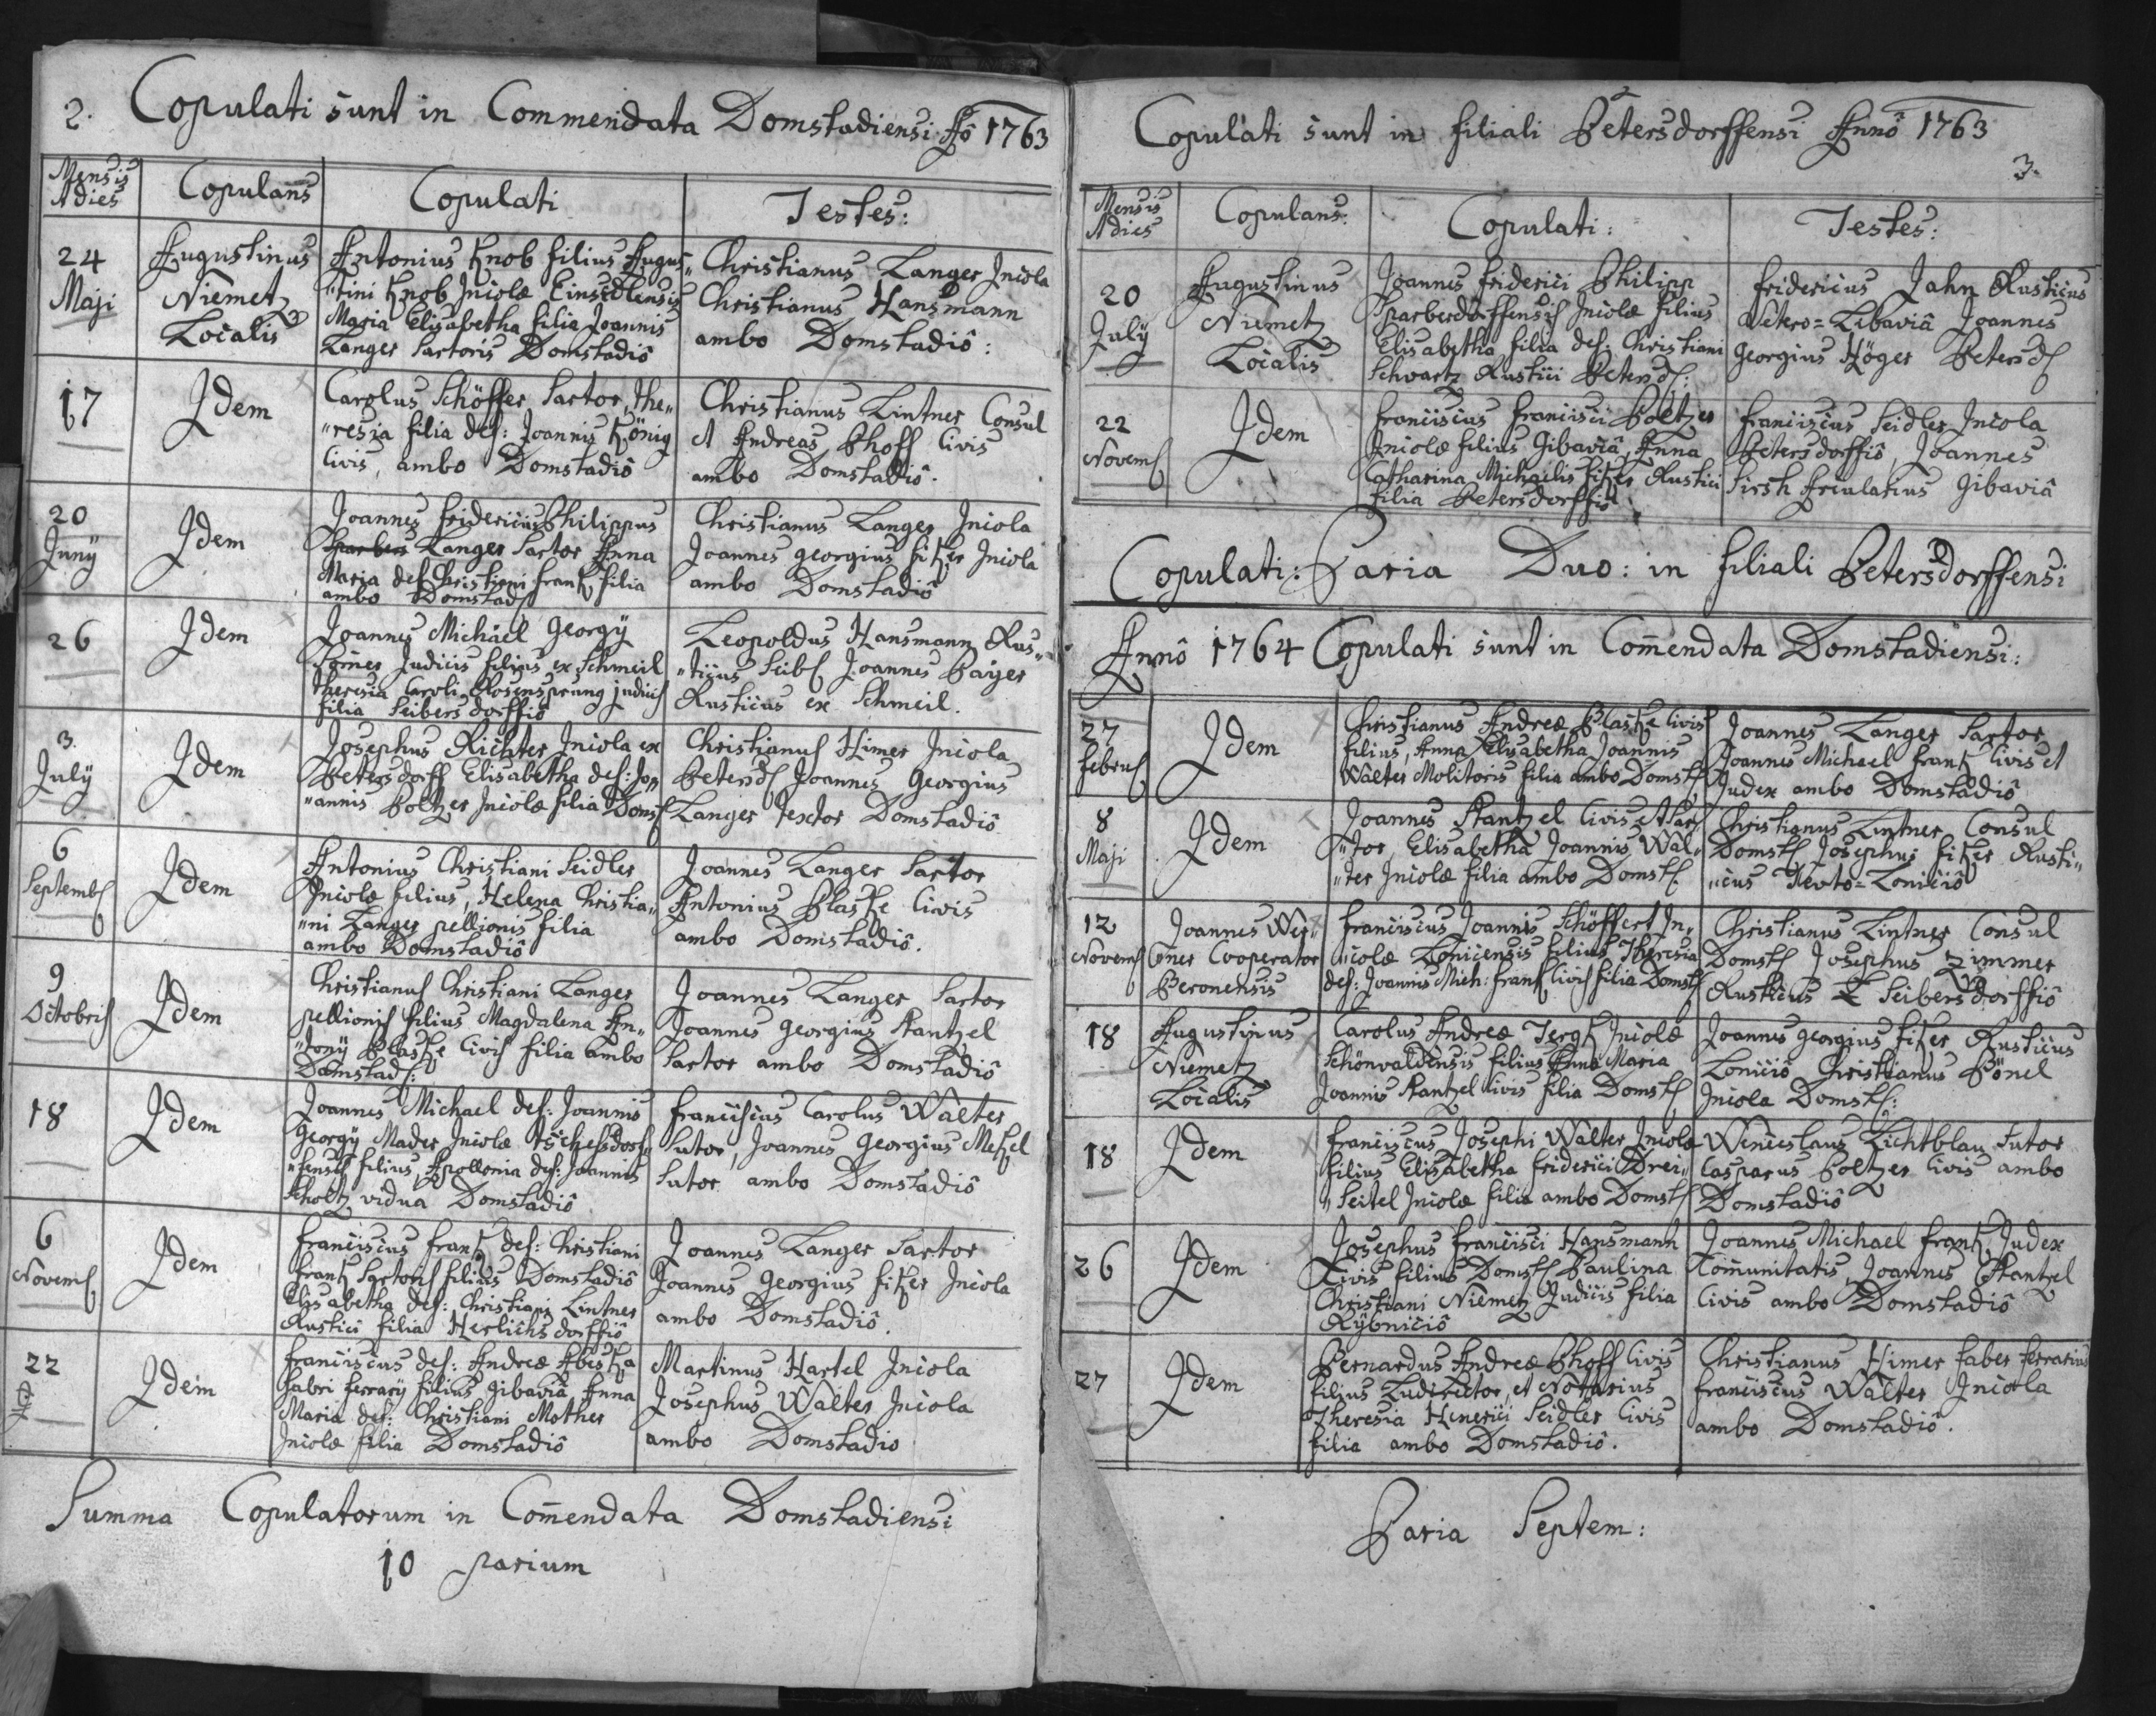 2. Copulati sunt in Commendata Domstadiensi Aô 1763
Mensis
Adies
Copulans
Copulati
Testes:
24
Maji
Augustinus
Niemetz
Localis
Antonius Knob filius Augus„
„tini Knob Incolæ Einsedlensis
Maria Elisabetha filia Joannis
Langer Sartoris Domstadiô
Christianus Langer Incola
Christianus Hansmann
ambo Domstadiô:
17
Idem
Carolus Schöffer Sartor, The„
„resia filia def: Joannis König
Civis, ambo Domstadiô
Christianus Lintner Consul
et Andreas Bhoff Civis
ambo Domstadiô.
20
Juny
Idem
Joannes Fridericus Philippus
Langer Sartor Anna
Maria def Christiani Frank filia
ambo Domstad
Christianus Langer Incola
Joannes Georgius Fitzer Incola
ambo Domstadiô
26
Idem
Joannes Michäel Georgÿ
Sommer Judicis filius ex Schmeil
Theresia Caroli Rosensprung judicis
filia Seibersdorffiô
Leopoldus Hansmann Rus„
„ticus Seib Joannes Bayer
Rusticus ex Schmeil.
3.
July
Idem
Josephus Richter Incola ex
Petersdorff Elisabetha def: Jo„
„annis Boltzer Incolæ filia Domst
Christianus Himer Incola
Petersd Joannes Georgius
Langer Textor Domstadiô
6
Septemb
Idem
Antonius Christiani Seidler
Incolæ filius, Helena Christia„
„ni Langer pellionis filia
ambo Domstadiô
Joannes Langer Sartor
Antonius Blaske Civis
ambo Domstadiô.
9
Octobris
Idem
Christianus Christiani Langer
pellionis filius Magdalena An„
„tonÿ Blaske Civis filia ambo
Domstad:
Joannes Langer Sartor
Joannes Georgius Stantzel
Sartor ambo Domstadiô
18
Idem
Joannes Michael def: Joannis
Georgÿ Mader Incolæ
filius, Apollonia def: Joannis
Scholtz vidua Domstadiô
Franciscus Carolus Walter
Sutor, Joannes Georgius Metzel
Sutor ambo Domstadiô
6
Novem
Idem
Franciscus Frank def: Christiani
Frank Sartoris filius Domstadiô
Elisabetha def: Christiani Lintner
Rustici filia Herlichsdorffiô
Joannes Langer Sartor
Joannes Georgius Fitzer Incola
ambo Domstadiô.
22
Idem
Franciscus def: Andreæ Abeska
Fabri ferrarÿ filius Gibaviâ Anna
Maria def: Christiani Mother
Incolæ filia Domstadiô
Martinus Hartel Incola
Josephus Walter Incola
ambo Domstadio
Summa Copulatorum in Comendata Domstadiensi
10 parium
Copulati sunt in filiali Petersdorffensi Annô 1763
3.
Mensis
Adies
Copulans.
Copulati:
Testes:
20
July
Augustinus
Niemetz
Localis
Joannes Friderici Philipp
Sparberdorffensis Incolæ filius
Elisabetha filia def: Christiani
Schwartz Rustici Petersd:
Fridericus Jahn Rusticus
Vetero=Libaviâ Joannes
Georgius Höger Petersd
22
Novem
Idem
Franciscus Francisci Boltzer
Incolæ filius Gibaviâ, Anna
Catharina Michaelis Fitzer Rustici
filia Petersdorffiô
Franciscus Seidler Incola
Petersdorffiô, Joannes
Hirsh Arculatius Gibaviâ
Copulati: Paria Duo: in filiali Petersdorffensi
Annô 1764 Copulati sunt in Comendata Domstadiensi:
27
Febru
Idem
Christianus Andreæ Blaske Civis
filius, Anna Elisabetha Joannis
Walter Molitoris filia ambo Domst
Joannes Langer Sartor
Joannes Michael Frank Civis et
Judex ambo Domstadiô
8
Maji
Idem
Joannes Stantzel Civis et Sar„
„tor, Elisabetha Joannis Wal„
„ter Incolæ filia ambo Domst
Christianus Lintner Consul
Domst Josephus Fitzer Rusti„
„cus
12
Novem
Joannes Wer„
ner Cooperator
Beronensis
Franciscus Joannis Schöffert In„
„colæ Lonicensis filius Theresia
def: Joannis Mich: Frank Civis filia Domst
Christianus Lintner Consul
Domst Josephus Zimmer
Rusticus Seibersdorffiô
18
Augustinus
Niemetz
Localis
Carolus Andreæ Jergk Incolæ
Schönvaldensis filius Anna Maria
Joannis Stantzel Civis filia Domst
Joannes Georgius Fitzer Rusticus
Loniciô Christianus Bönel
Incola Domst:
18
Idem
Franciscus Josephi Walter Incolæ
filius Elisabetha Friderici Drei„
„seitel Incolæ filia ambo Domst
Wenceslaus Lichtblau Sutor
Casparus Boltzer Civis ambo
Domstadiô
26
Idem
Josephus Francisci Hansmann
Civis filius Domst Paulina
Christiani Niemetz Judicis filia
Rÿbniciô
Joannes Michael Frank Judex
Communitatis, Joannes Stantzel
Civis ambo Domstadiô
27
Idem
Bernardus Andreæ Bhoff Civis
filius Ludirector, et Notarius
Theresia Henerici Seidler Civis
filia ambo Domstadiô.
Christianus Himer Faber ferrarius
Franciscus Walter Incola
ambo Domstadiô.
Paria Septem: